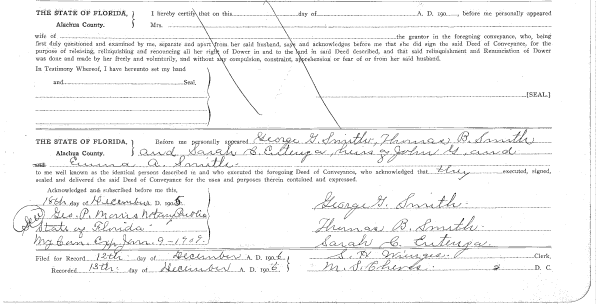 THE STATE OF FLORIDA, I hereby certify that on this day of A. D. 190 , before me personally appeared
Alachua County. Mrs.
wife of the grantor in the foregoing conveyance, who, being
first duly questioned and examined by me, separate and apart from her said husband, says and acknowledges before me that she did sign the said Deed of Conveyance, for the
purpose of releasing, relinquishing and renouncing all her right of Dower in and to the land in said Deed described, and that said relinquishment and Renunciation of Dower
was done and made by her freely and voluntarily, and without any compulsion, constraint, apprehension or fear of or from her said husband.
In Testimony Whereof, I have hereunto set my hand
and Seal,
[SEAL.]
THE STATE OF FLORIDA, Before me personally appeared George G. Smith, Thomas B. Smith
Alachua County. and Sarah C. Eutenga, heirs of John G. and
Emma A. Smith
to me well known as the identical persons described in and who executed the foregoing Deed of Conveyance, who acknowledged that they executed, signed,
sealed and delivered the said Deed of Conveyance for the uses and purposes therein contained and expressed.
Acknowledged and subscribed before me this,
day of December A. D. 190
George G. Smith.
(Seal) Geo. P. Morris Notary Public
Thomas B. Smith
State of Florida
Sarah C. Eutenga
My Com. Exp. Jan. 9-1909.
Filed for Record 12th day of December A. D. 1906 S. H. Wienges Clerk,
Recorded 13th day of December A. D. 1906 M. S. Cheves D. C.